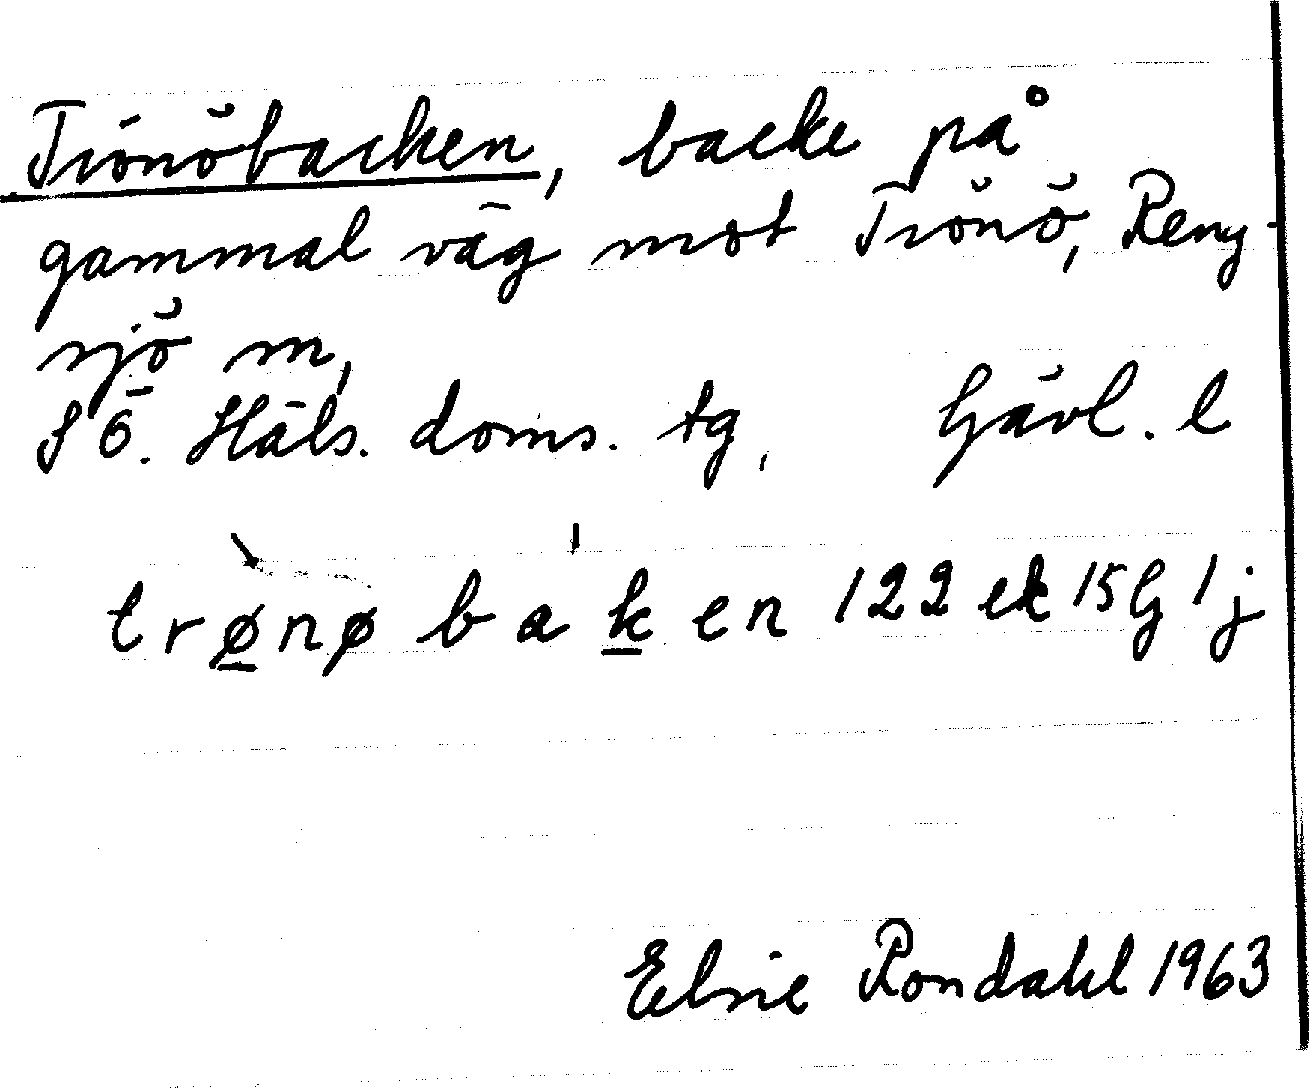 Trönöbacken, backe på
gammal väg mot Trönö, Reny-
sjö m,
S Ö. Häls. doms. tg, Gävl. l
trønø baken 122 ek 15G 1j
Elsie Rondahl 1963